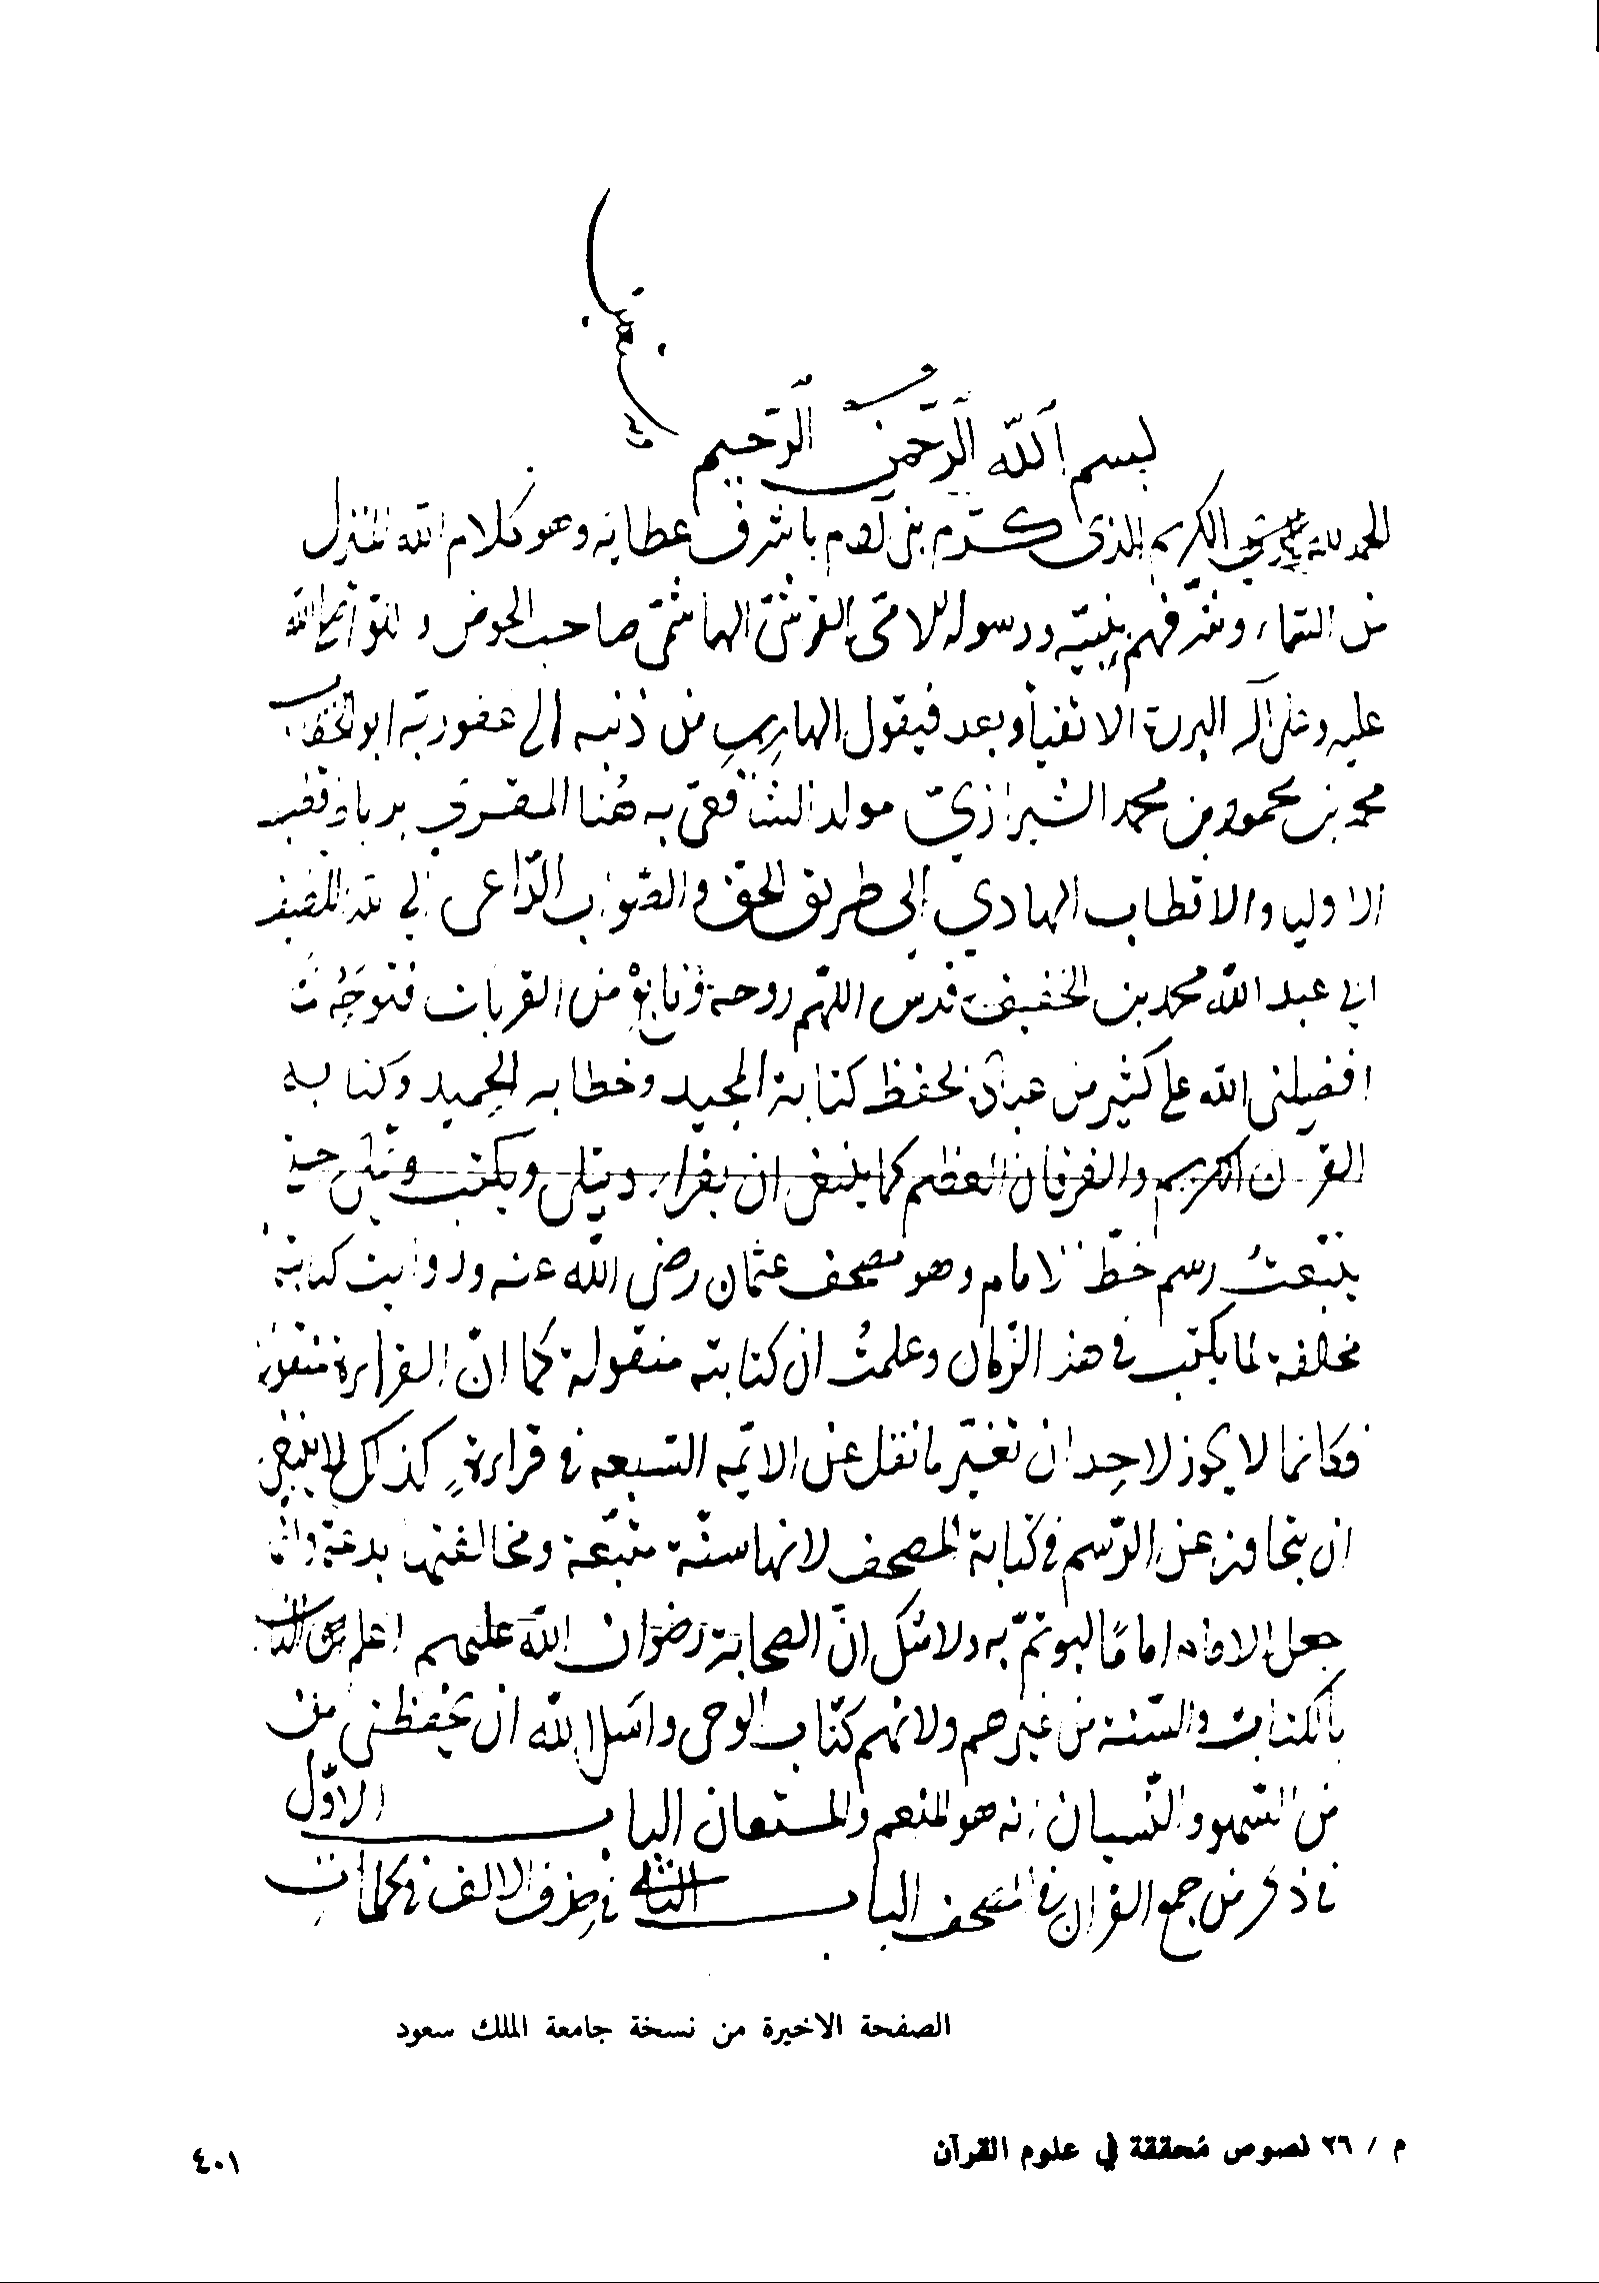 بسم الله الرحمن الرحيم
الحمد لله الكريم الذى كرّم بنى آدم باشرف عطايه وهو كلام الله المنزل
من السماء وشرّفهم بنبيّه ورسوله الامّى القرشىّ الهاشمىّ صاحب الحوض و
عليه وعلى آله البررة الاتقيا وبعد فيقول الهارب من ذنبه الى عفو ربه ابو
محمد بن محمود بن محمد الشيرازىّ مولدا الشافعى مذهبا المقرى
الاوليا والاقطاب الهادي الى طريق الحق والصواب الدّاعى
ابى عبد الله محمد بن الخفيف قدس اللهم روحه من القربات فتوجهت
افضلنى الله على كثير من عباده بحفظ كتابة المجيد وخطابه الحميد وكتابه
القران الكريم والفرقان العظيم كما ينبغى ان يقرا ويتلى ويكتب
تتبّعتُ رسم خطّ الامام وهو مصحف عثمان رضى الله عنه ورايت كتابته
مخالفة لما يكتب فى هذ الزّمان وعلمتُ ان كتابته منقولة كما انّ القراءة منقولة
فكما لا يجوز لاحد ان تغيّر ما نقل عن الايمّه السّبعه فى قراءةٍ كذلك لا ينبغى
ان يتجاوز عن الرّسم فى كتابة المصحف لانها سنّة متّبعة ومخالفتها بدعة
جعل الامام اماما ليوتمّ به ولا شك انّ الصحابة رضوان الله عليهم اعلم
بالكتابت والسّنة من غيرهم ولانهم كتّاب الوحى واسل الله ان يحفظنى من
من السّهو والنّسيان انه هو المنعم والمستعان الباب الاوّل
فى ذكر من جمع القران فى المصحف الباب الثانى فى حذف الالف فى كلمات
الصفحة الاخيرة من نسخة جامعة الملك سعود
م / ٢٦ نصوص مُحققة في علوم القرآن
٤٠١